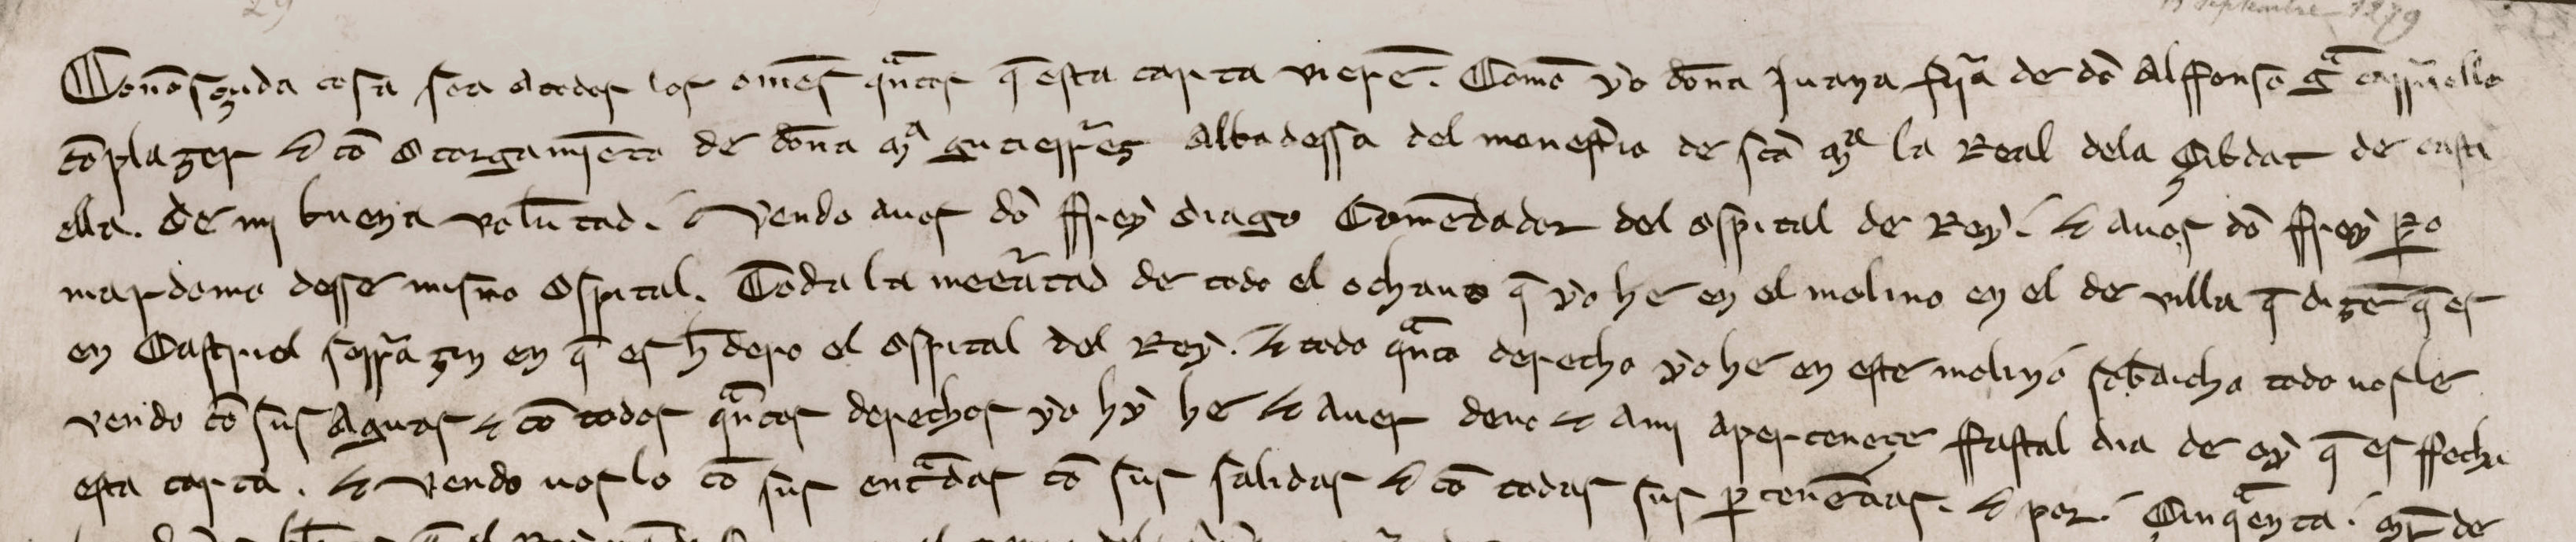 29
Septembre 1279
Conosçuda cosa sea a todos los omēs qntos q̄ esta carta vierē. Como yo dōna Juana fija de dō Alffonso gª carriello
cō plazer & cō otorgamiēto de dōna mª gutierrez Abbadessa del monesterio de scā mª la Real dela Çibdat de casti
ella. de mi buena volūtad. Vendo auos dō ffrey diago Comēdador del ospital de Rey. & auos dō ffrey pº
mardomo desse mismo ospital. Toda la meetad de todo el ochauo q̄ yo he en el molino en el de villa q̄ dizē q̄ es
en Castriel serrazin en q̄ es h̄dero el ospital del Rey. & todo qnto derecho yo he en este molino sobdicho todo uosle
vendo cō sus Aguas & cō todos qntos derechos yo hy he & auer deuo & ami apertenece ffastal dia de oy q̄ es ffecha
esta carta. & vendo uoslo cō sus entdas cō sus salidas & cō todas sus ptenēcias. & por. Çinqenta. mr̄ de